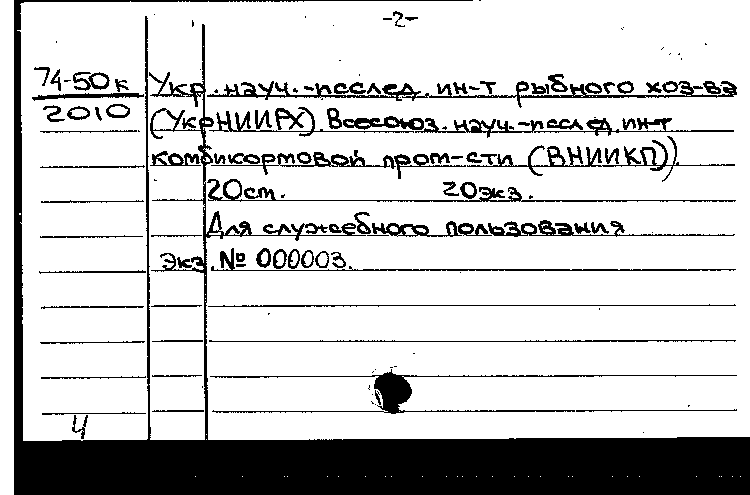 -2-
74-50к Укр.науч.-исслед.ин-т рыбного хоз-ва
2010 (УкрНИИРХ). Всесоюз.науч.-исслед.ин-т
комбикормовой пром-сти (ВНИИКП)).
20ст. 20экз.
Для служебного пользования
Экз. № 000003.
4